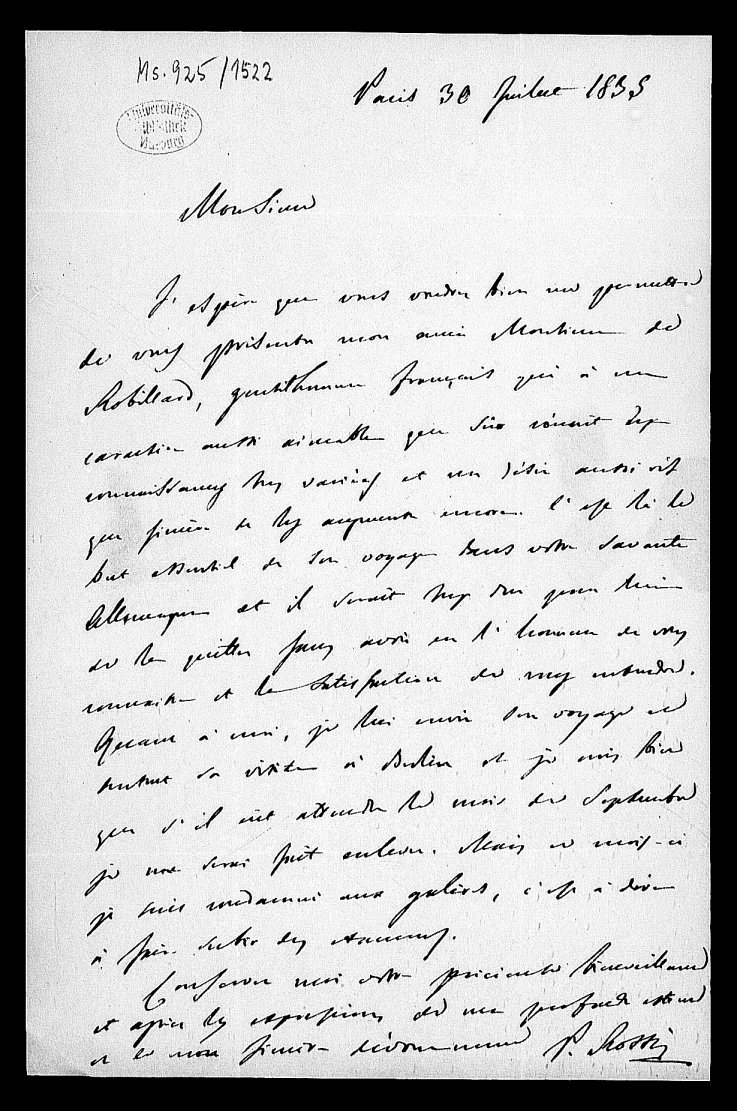 Ms. 925/1522
Universitäts-
Bibliothek
Marburg
Paris 30 Juillet 1835
Monsieur
J'espère que vous voudrez bien me permettre
de vous présenter mon ami Monsieur de
Robillard, gentilhomme français qui à un
caractère aussi aimable que sûr réunit des
connaissances très variées et un désir aussi vif
que sincère de les augmenter encore. C'est là le
but essentiel de son voyage dans votre savante
Allemagne et il serait trop dur pour lui
de la quitter sans avoir eu l'honneur de vous
connaître et la satisfaction de vous entendre.
Quant à moi, je lui envie son voyage et
surtout sa visite à Berlin et je crois bien
que s'il eût attendu le mois de Septembre
je me serai fait enlever. Mais ce mois-ci
je suis condamné aux galères, c'est à dire
à faire subir des examens.
Conservez moi votre précieuse bienveillance
et agréez les expressions de ma profonde estime
et de mon sincère dévouement P. Rossi